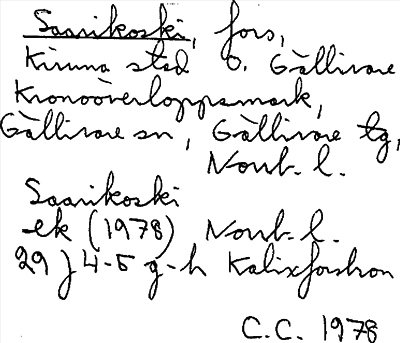 Saarikoski, fors,
Kiruna stad o. Gällivare
Kronoöverloppsmark,
Gällivare sn, Gällivare tg,
Norrb. l.
Saarikoski
ek (1978) Norrb. l.
29 J 4-5 g-h Kalixforsbron
C.C. 1978